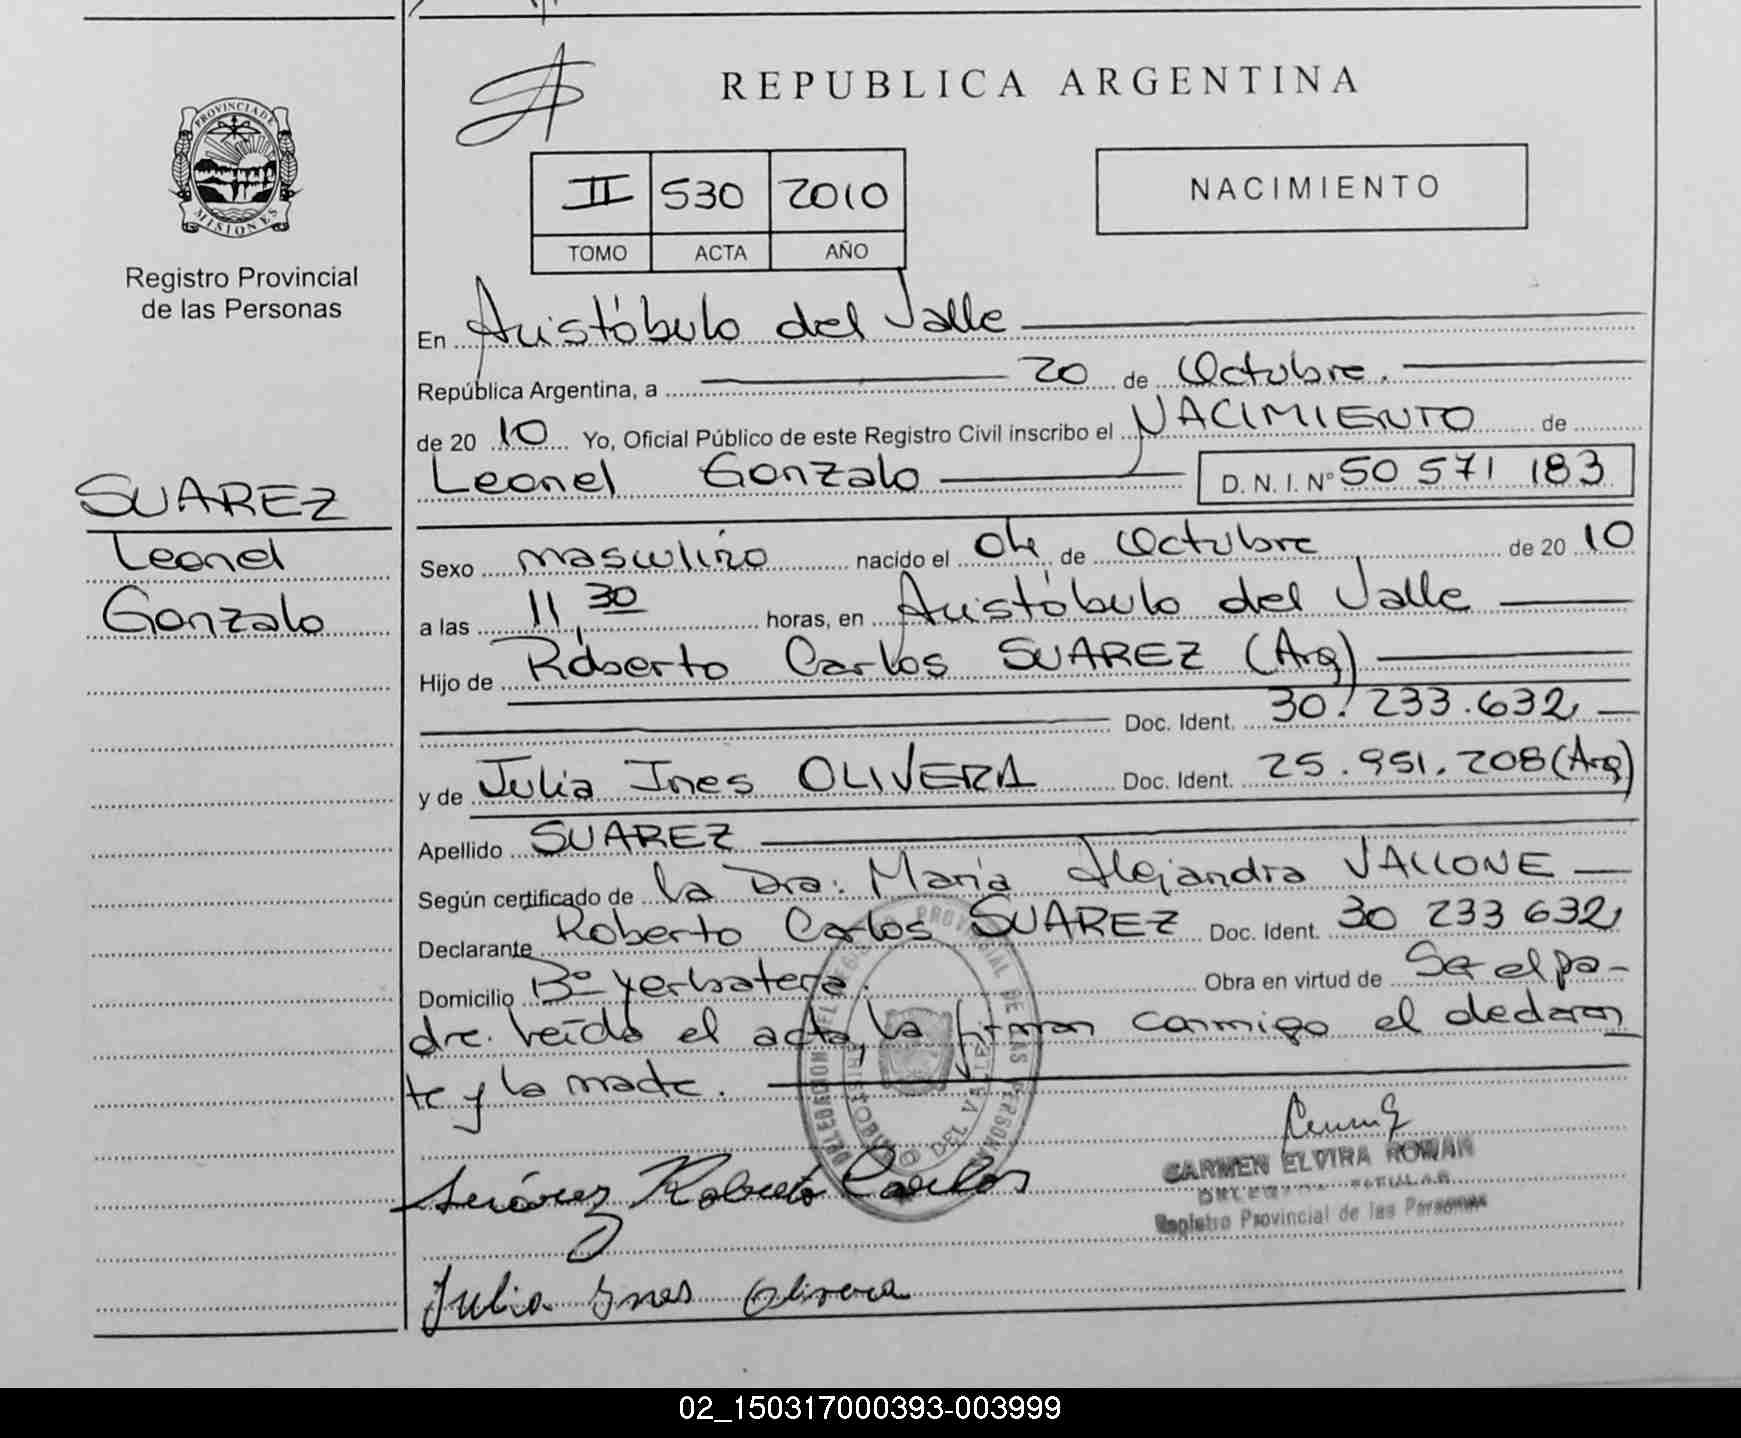 REPUBLICA ARGENTINA
PROVINCIA DE MISIONES
Registro Provincial
de las Personas
II 530 2010
TOMO ACTA AÑO
NACIMIENTO
En Aristóbulo del Valle
República Argentina, a 20 de Octubre.
de 2010 Yo, Oficial Público de este Registro Civil inscribo el NACIMIENTO de
Leonel Gonzalo D. N. I. N° 50 571 183
SUAREZ
Leonel
Gonzalo
Sexo masculino nacido el 04 de Octubre de 2010
a las 11,30 horas, en Aristóbulo del Valle
Hijo de Roberto Carlos SUAREZ (Arg)
Doc. Ident. 30.233.632
y de Julia Ines OLIVERA Doc. Ident. 25.951.208 (Arg)
Apellido SUAREZ
Según certificado de la Dra. María Alejandra VALLONE
Declarante Roberto Carlos SUAREZ Doc. Ident. 30 233 632
Domicilio B° Yerbatera. Obra en virtud de Ser el pa-
dre. leída el acta, la firman conmigo el declaran
te y la madre.
DELEGACION DEL REGISTRO PROVINCIAL DE LAS PERSONAS
ARISTOBULO DEL VALLE
CARMEN ELVIRA ROMAN
DELEGADA TITULAR
Registro Provincial de las Personas
Suárez Roberto Carlos
Julia Ines Olivera
02_150317000393-003999